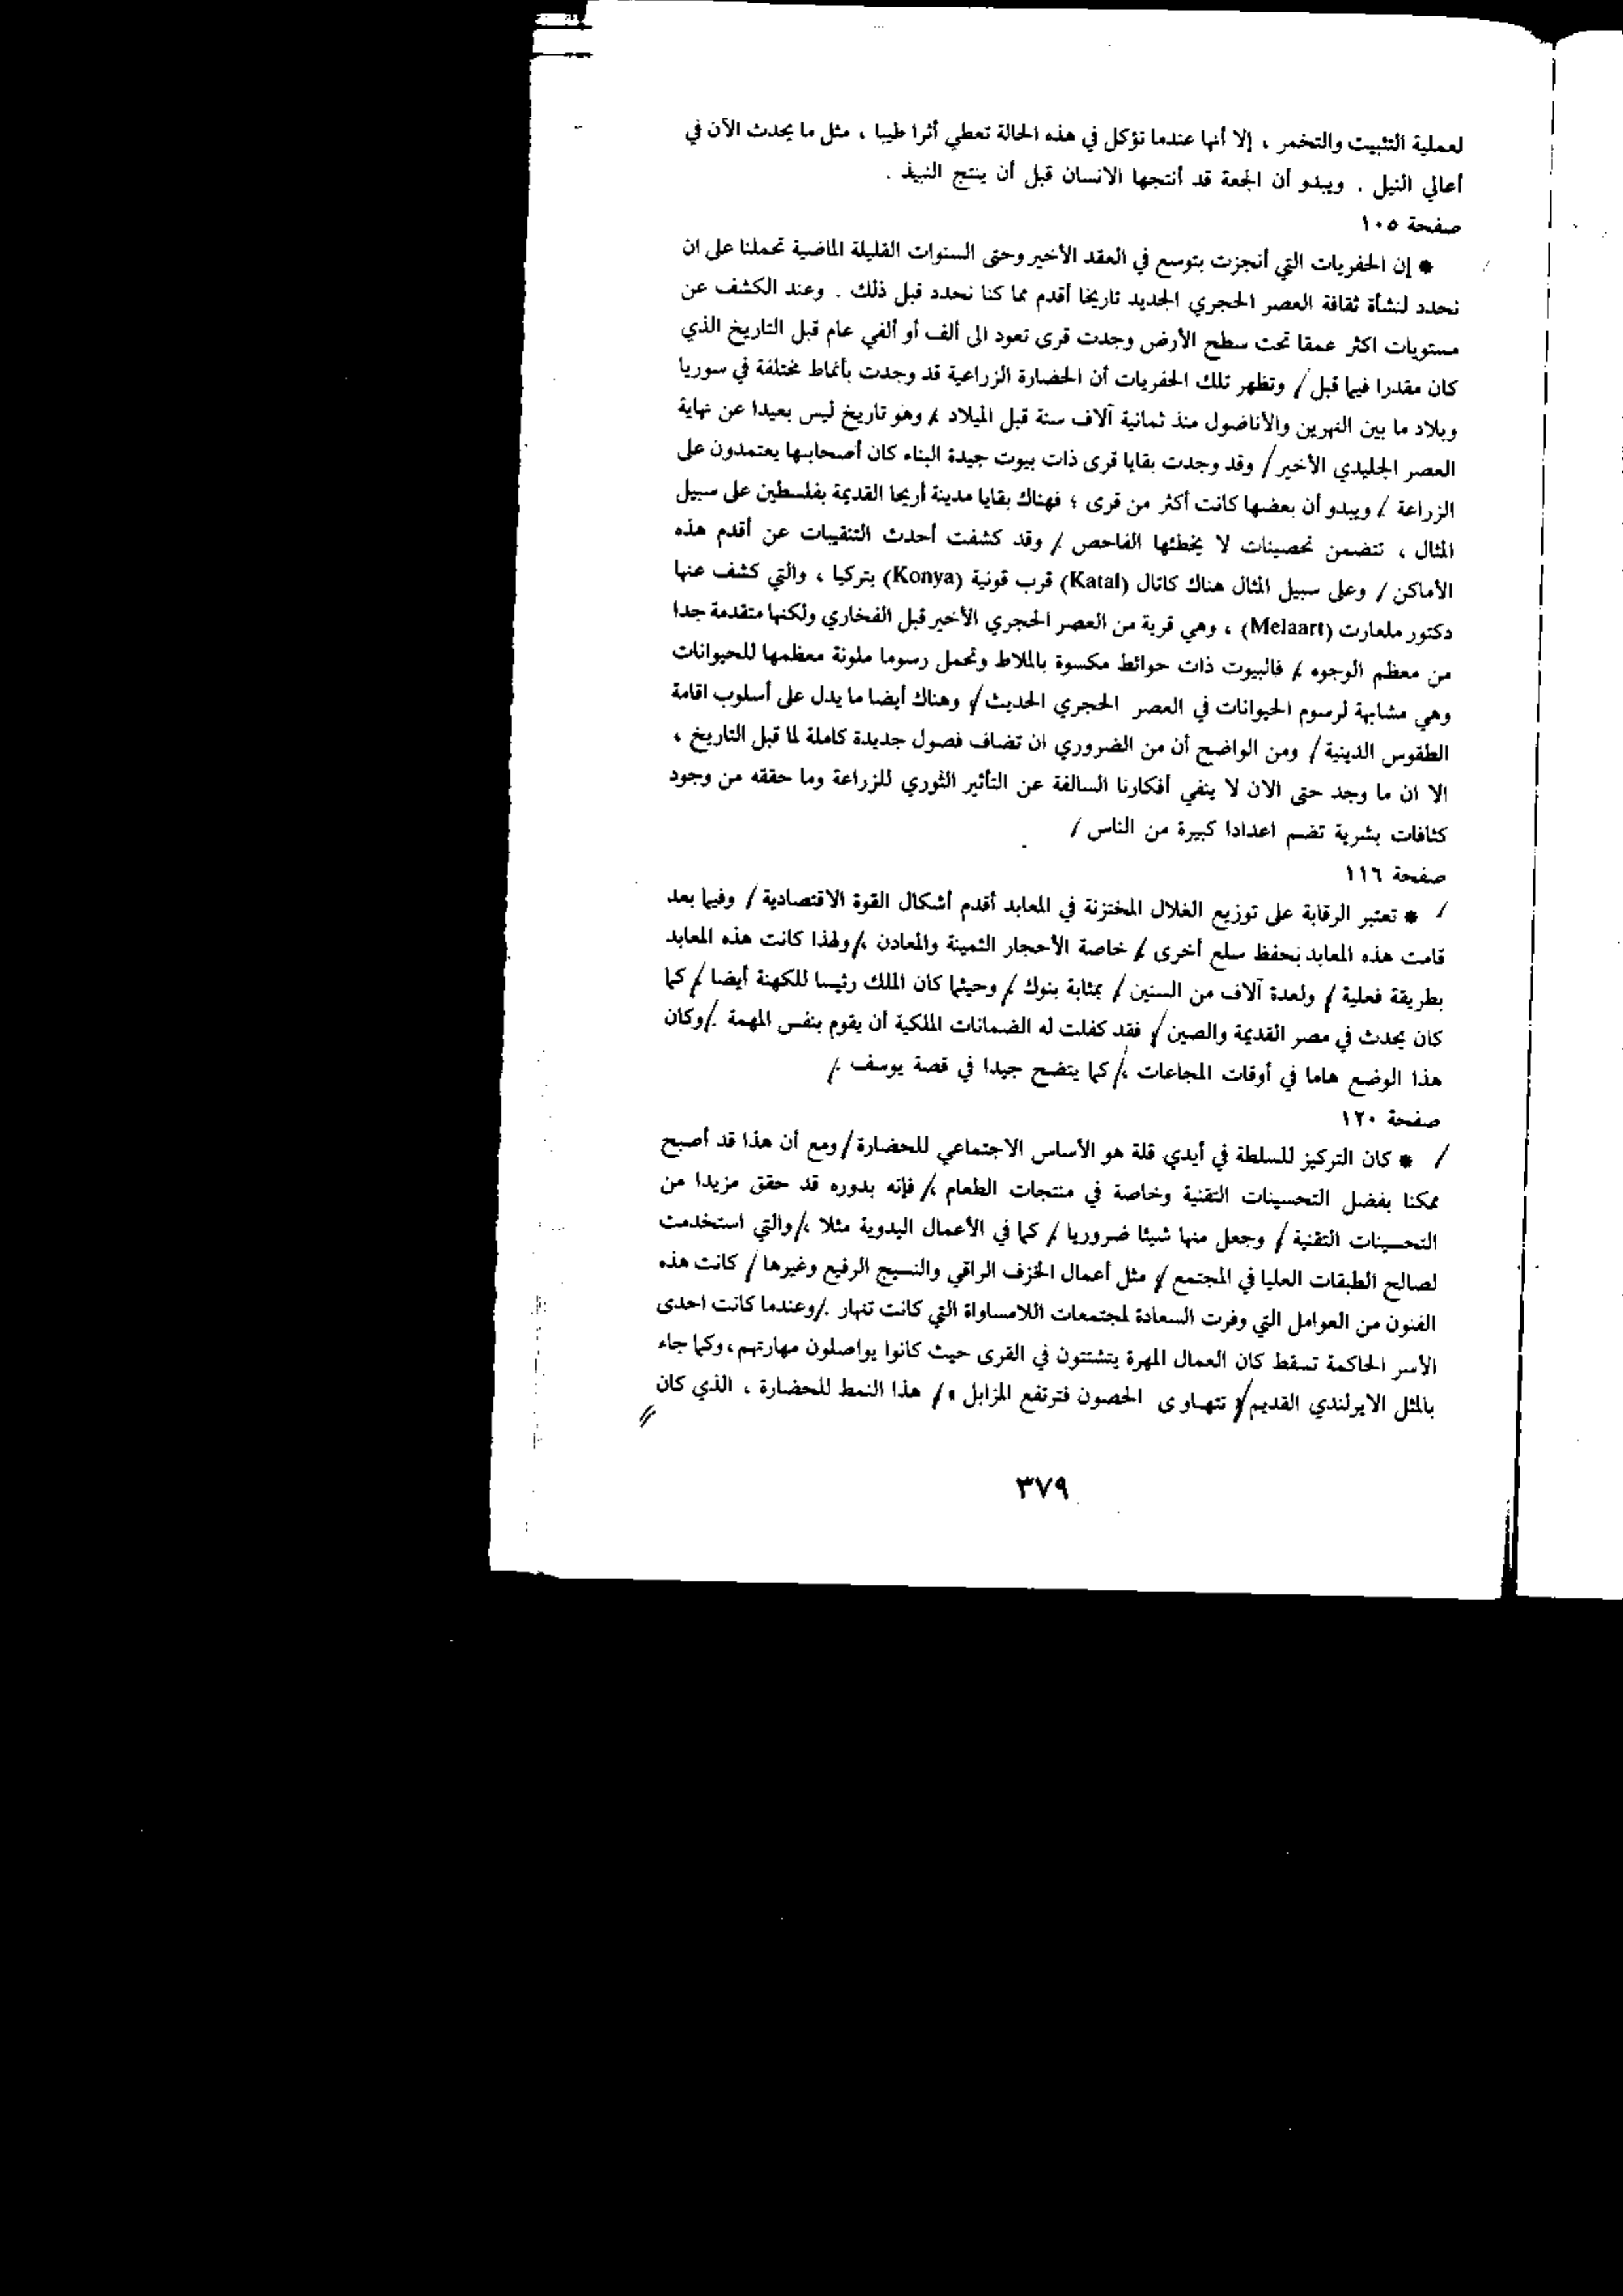 لعملية التثبيت والتخمر ، إلا أنها عندما تؤكل في هذه الحالة تعطي أثرا طيبا ، مثل ما يحدث الآن في
أعالي النيل . ويبدو أن الجعة قد أنتجها الانسان قبل أن ينتج النبيذ .
صفحة ١٠٥
* إن الحفريات التي أنجزت بتوسع في العقد الأخير وحتى السنوات القليلة الماضية تحملنا على ان
نحدد لنشأة ثقافة العصر الحجري الجديد تاريخا أقدم مما كنا نحدد قبل ذلك . وعند الكشف عن
مستويات اكثر عمقا تحت سطح الأرض وجدت قرى تعود الى ألف أو ألفي عام قبل التاريخ الذي
كان مقدرا فيما قبل / وتظهر تلك الحفريات أن الحضارة الزراعية قد وجدت بأنماط مختلفة في سوريا
وبلاد ما بين النهرين والأناضول منذ ثمانية آلاف سنة قبل الميلاد / وهو تاريخ ليس بعيدا عن نهاية
العصر الجليدي الأخير / وقد وجدت بقايا قرى ذات بيوت جيدة البناء كان أصحابها يعتمدون على
الزراعة / ويبدو أن بعضها كانت أكثر من قرى ؛ فهناك بقايا مدينة أريحا القديمة بفلسطين على سبيل
المثال ، تتضمن تحصينات لا يخطئها الفاحص / وقد كشفت أحدث التنقيبات عن أقدم هذه
الأماكن / وعلى سبيل المثال هناك كاتال (Katal) قرب قونية (Konya) بتركيا ، والتي كشف عنها
دكتور ملعارت (Melaart) ، وهي قرية من العصر الحجري الأخير قبل الفخاري ولكنها متقدمة جدا
من معظم الوجوه / فالبيوت ذات حوائط مكسوة بالملاط وتحمل رسوما ملونة معظمها للحيوانات
وهي مشابهة لرسوم الحيوانات في العصر الحجري الحديث / وهناك أيضا ما يدل على أسلوب اقامة
الطقوس الدينية / ومن الواضح أن من الضروري ان تضاف فصول جديدة كاملة لما قبل التاريخ ،
الا ان ما وجد حتى الان لا ينفي أفكارنا السالفة عن التأثير الثوري للزراعة وما حققه من وجود
كثافات بشرية تضم اعدادا كبيرة من الناس /
صفحة ١١٦
/ * تعتبر الرقابة على توزيع الغلال المختزنة في المعابد أقدم أشكال القوة الاقتصادية / وفيما بعد
قامت هذه المعابد بحفظ سلع أخرى / خاصة الأحجار الثمينة والمعادن ،/ ولهذا كانت هذه المعابد
بطريقة فعلية / ولعدة آلاف من السنين / بمثابة بنوك / وحيثما كان الملك رئيسا للكهنة أيضا / كما
كان يحدث في مصر القديمة والصين / فقد كفلت له الضمانات الملكية أن يقوم بنفس المهمة ./ وكان
هذا الوضع هاما في أوقات المجاعات ،/ كما يتضح جيدا في قصة يوسف ./
صفحة ١٢٠
/ * كان التركيز للسلطة في أيدي قلة هو الأساس الاجتماعي للحضارة / ومع أن هذا قد أصبح
ممكنا بفضل التحسينات التقنية وخاصة في منتجات الطعام ،/ فإنه بدوره قد حقق مزيدا من
التحسينات التقنية / وجعل منها شيئا ضروريا / كما في الأعمال اليدوية مثلا ،/ والتي استخدمت
لصالح الطبقات العليا في المجتمع / مثل أعمال الخزف الراقي والنسيج الرفيع وغيرها / كانت هذه
الفنون من العوامل التي وفرت السعادة لمجتمعات اللامساواة التي كانت تنهار ./ وعندما كانت احدى
الأسر الحاكمة تسقط كان العمال المهرة يتشتتون في القرى حيث كانوا يواصلون مهارتهم ، وكما جاء
بالمثل الايرلندي القديم / تتهاوى الحصون فترتفع المزابل » / هذا النمط للحضارة ، الذي كان
٣٧٩